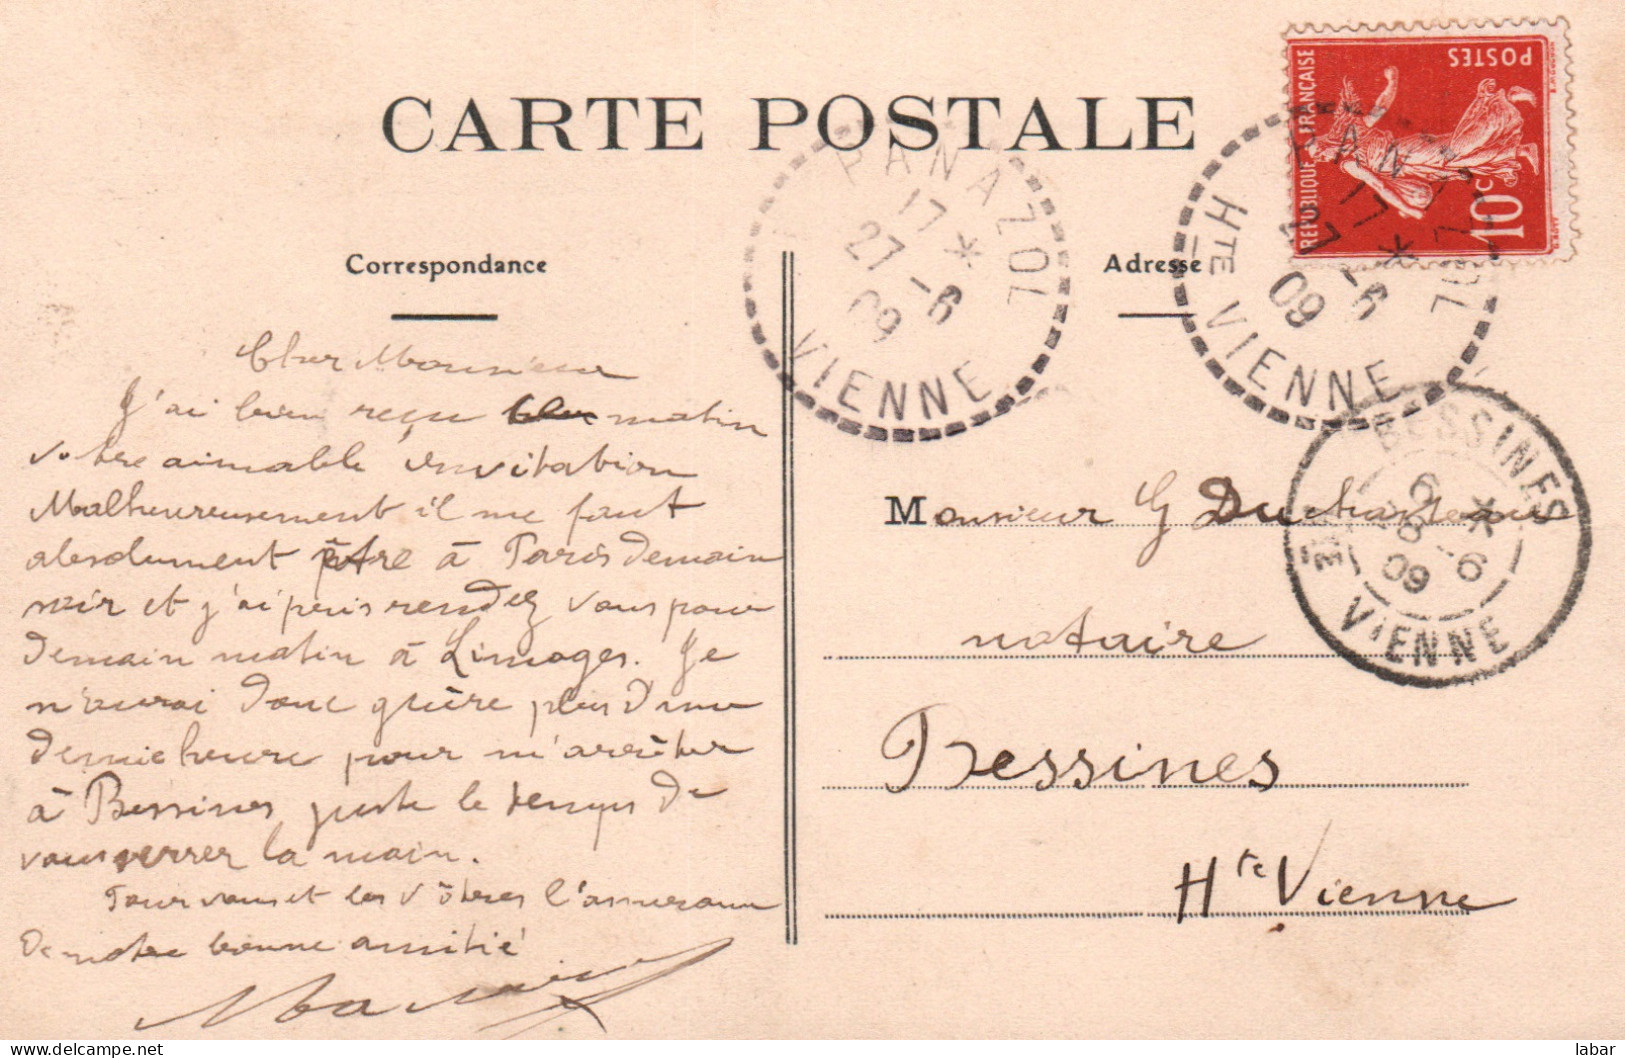 CARTE POSTALE
Correspondance
Adresse
POSTES
RÉPUBLIQUE FRANÇAISE
10c
PANAZOL
17 *
27 -6
09
Hte VIENNE
PANAZOL
17 *
27 -6
09
VIENNE
BESSINES
6 *
28 -6
09
VIENNE
Cher Monsieur
J'ai bien reçu matin
votre aimable invitation
Malheureusement il me faut
absolument être à Paris demain
soir et j'ai pris rendez vous pour
demain matin à Limoges. Je
n'aurai donc guère plus d'une
demie heure pour m'arrêter
à Bessines juste le temps de
vous serrer la main.
Pour vous et les vôtres l'assurance
de notre bonne amitié
Monsieur G Duchateau
notaire
Bessines
Hte Vienne
delcampe.net
labar